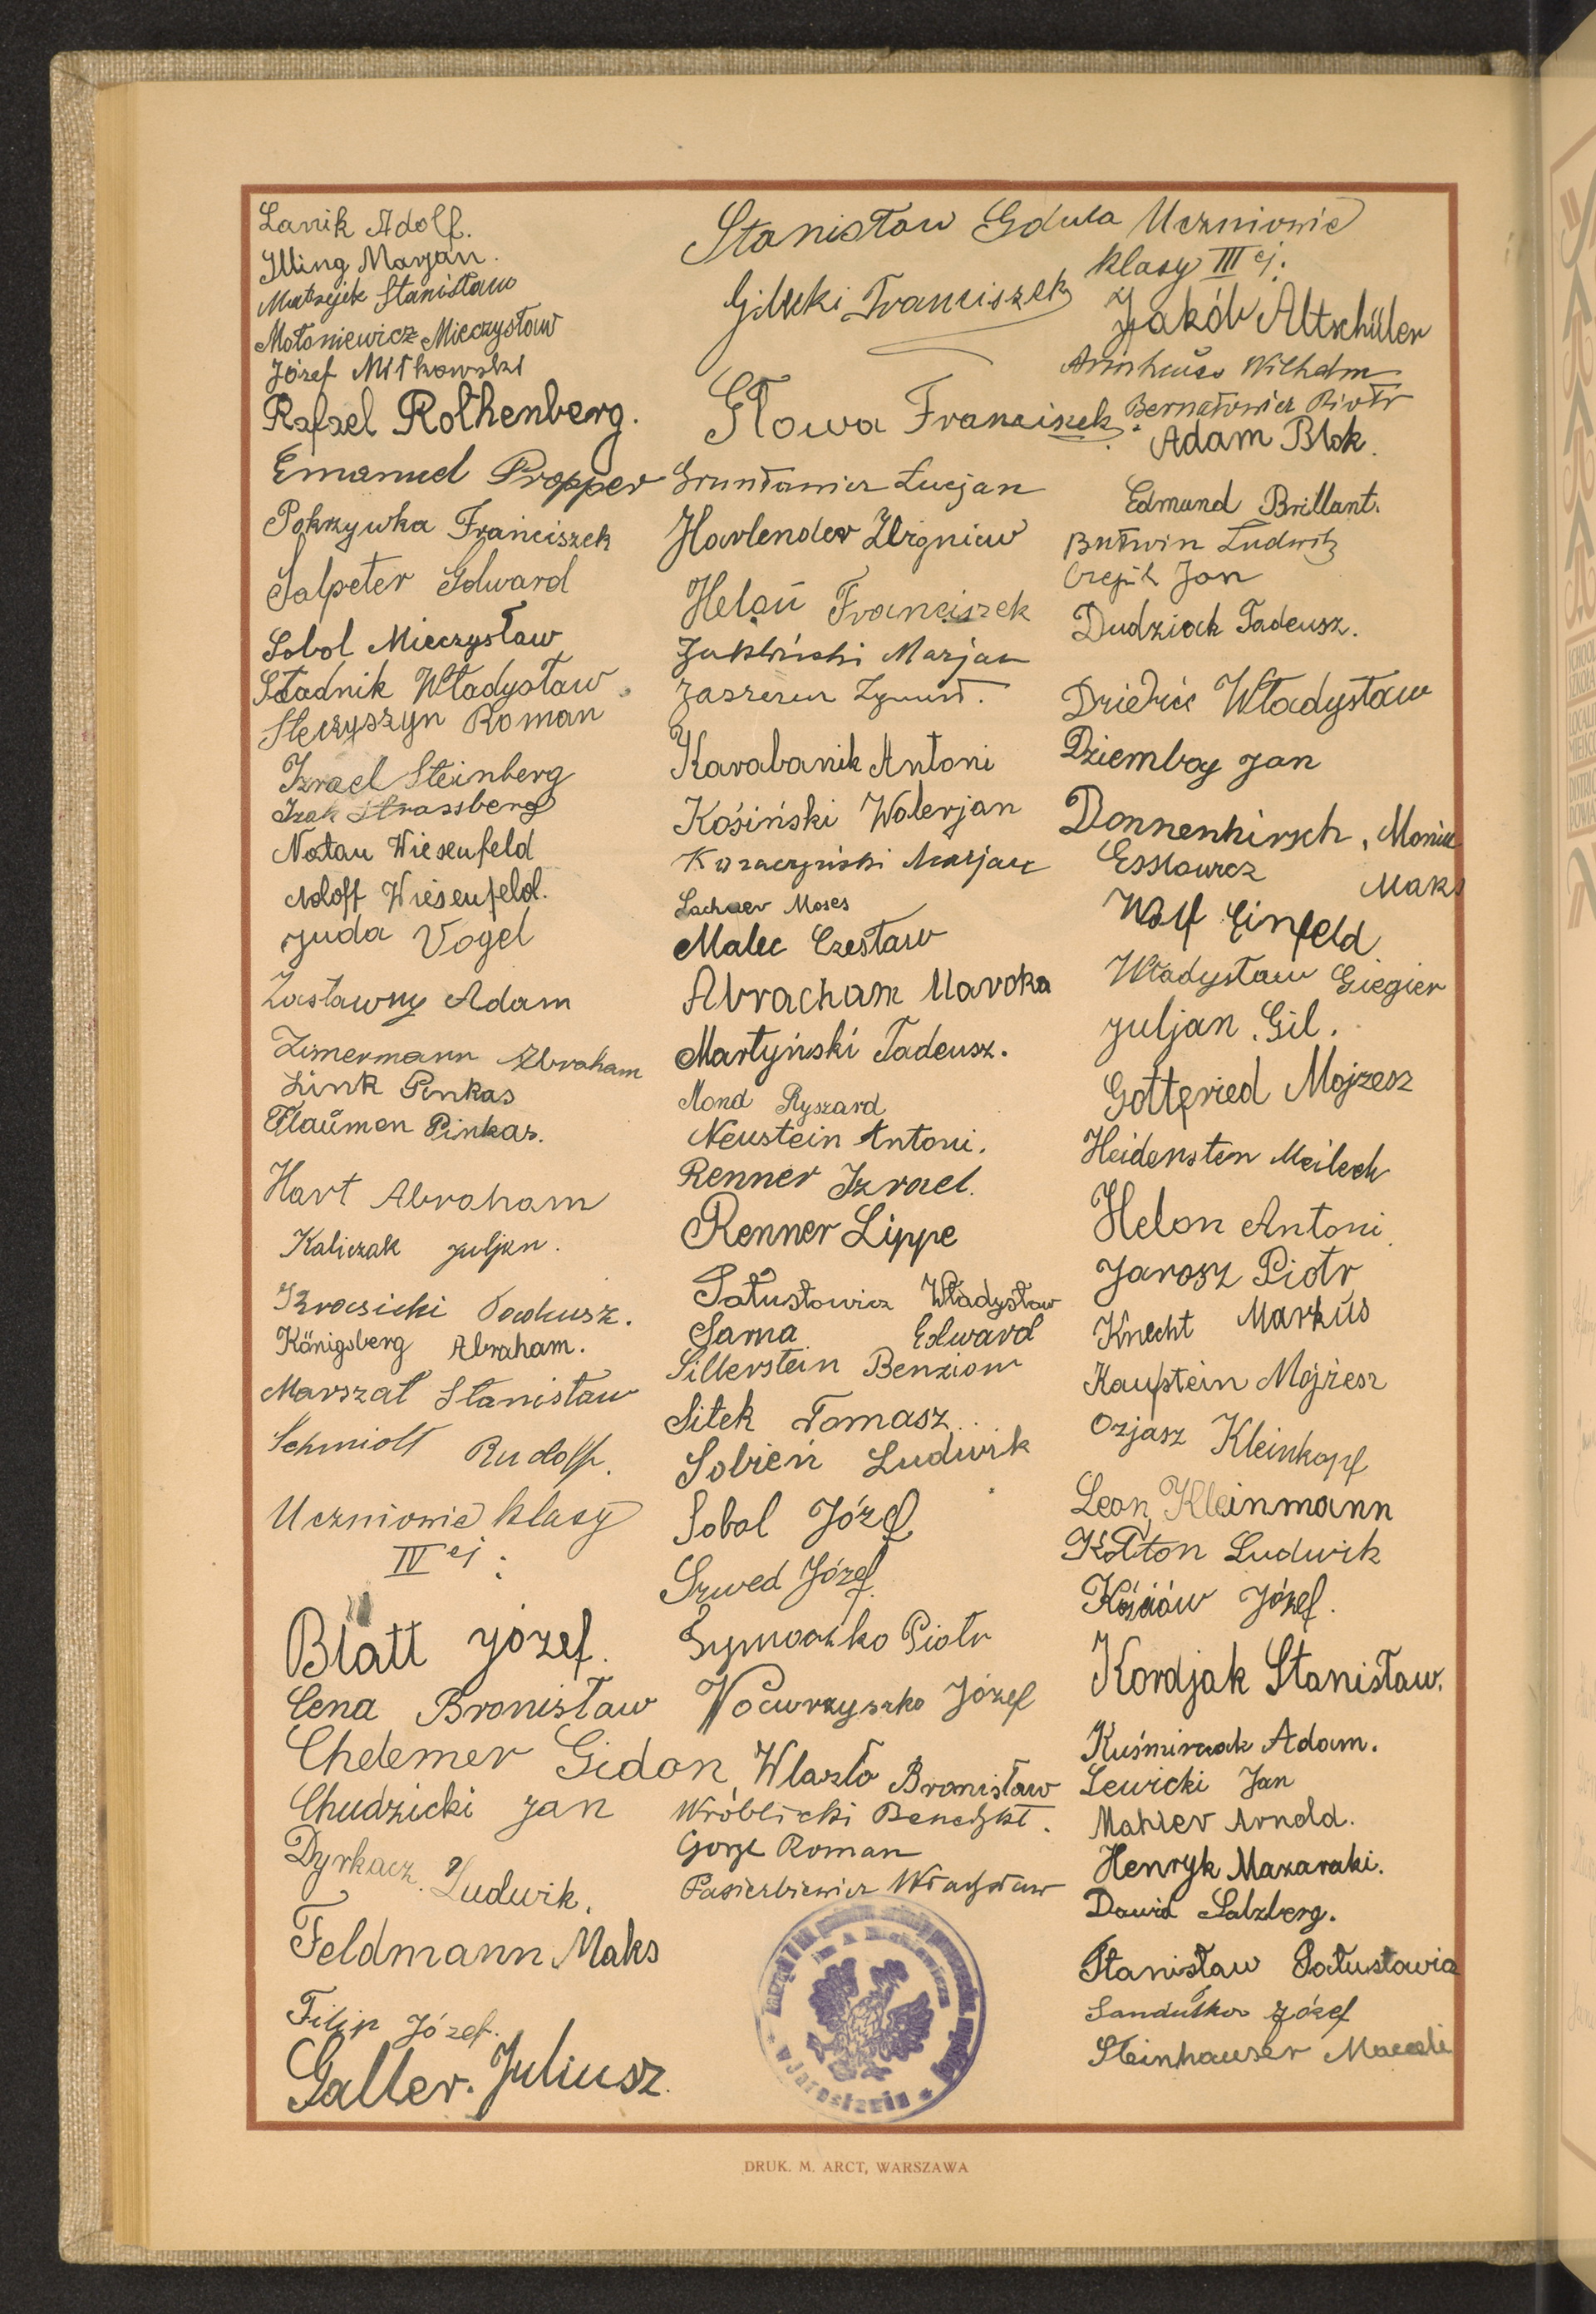 Lanik Adolf.
Illing Marjan.
Matzejek Stanisław
Mołoniewicz Mieczysław
Józef Mitkowski
Rafael Rothenberg.
Emanuel Propper
Pokrzywka Franciszek
Salpeter Edward
Sobol Mieczysław
Stadnik Władysław
Steczyszyn Roman
Izrael Steinberg
Izak Strassberg
Natan Wiesenfeld
Adolf Wiesenfeld.
Juda Vogel
Zasławny Adam
Zimermann Abraham
Link Pinkas
Flaumen Pinkas.
Hart Abraham
Kaliczak Juljan.
Krasicki Tadeusz.
Königsberg Abraham.
Marszał Stanisław
Schmidt Rudolf.
Uczniowie klasy
IV ej:
Blatt Józef.
Cena Bronisław
Chelemer Gidon
Chudzicki Jan
Dyrkacz Ludwik.
Feldmann Maks
Filip Józef.
Galler Juliusz.
Stanisław Gdula
Gilski Franciszek
Głowa Franciszek.
Łucjan
Harlender Zbigniew
Heloń Franciszek
Jakliński Marjan
Zygmunt.
Karabanik Antoni
Kosiński Walerjan
Marjan
Lachner Moses
Malec Czesław
Abracham Maroka
Martyński Tadeusz.
Mond Ryszard
Neustein Antoni.
Renner Izrael.
Renner Lippe
Sałustowicz Władysław
Sarna Edward
Silberstein Benzion
Sitek Tomasz
Sobień Ludwik
Sobol Józef
Szwed Józef.
Szymoszko Piotr
Wawrzyszko Józef
Wlazło Bronisław
Wróblicki Benedykt.
Roman
Pasierbiewicz Władysław
Uczniowie
klasy III ej:
Jakób Altschüler
Wilhelm
Bernatowicz Piotr
Adam Blok.
Edmund Brillant.
Butwin Ludwik
Jan
Dudziak Tadeusz.
Władysław
Dziemboy Jan
Donnenhirsch, Moniu
Esslowicz Maks
Wolf Einfeld
Władysław Giegier
Juljan Gil.
Gottfried Mojzesz
Heidensten Meilech
Helon Antoni
Jarosz Piotr
Knecht Markus
Kaufstein Mojżesz
Ozjasz Kleinkopf
Leon Kleinmann
Kołton Ludwik
Kościów Józef.
Kordjak Stanisław.
Kuśmirczak Adam.
Lewicki Jan
Mahler Arnold.
Henryk Mazaraki.
Dawid Salzberg.
Stanisław Sałustowicz
Sandułka Józef
Steinhauser Marceli
w Jarosławiu
DRUK. M. ARCT, WARSZAWA